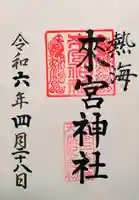 熱海
來宮神社
令和六年四月二十八日